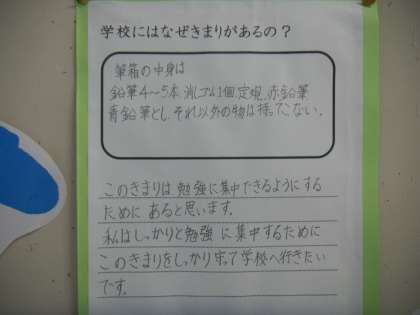 学校にはなぜきまりがあるの？
筆箱の中身は
鉛筆4〜5本、消しゴム1個、定規、赤鉛筆
青鉛筆とし、それ以外の物は持ってこない。
このきまりは勉強に集中できるようにする
ためにあると思います。
私はしっかりと勉強に集中するために
このきまりをしっかり守って学校へ行きたい
です。